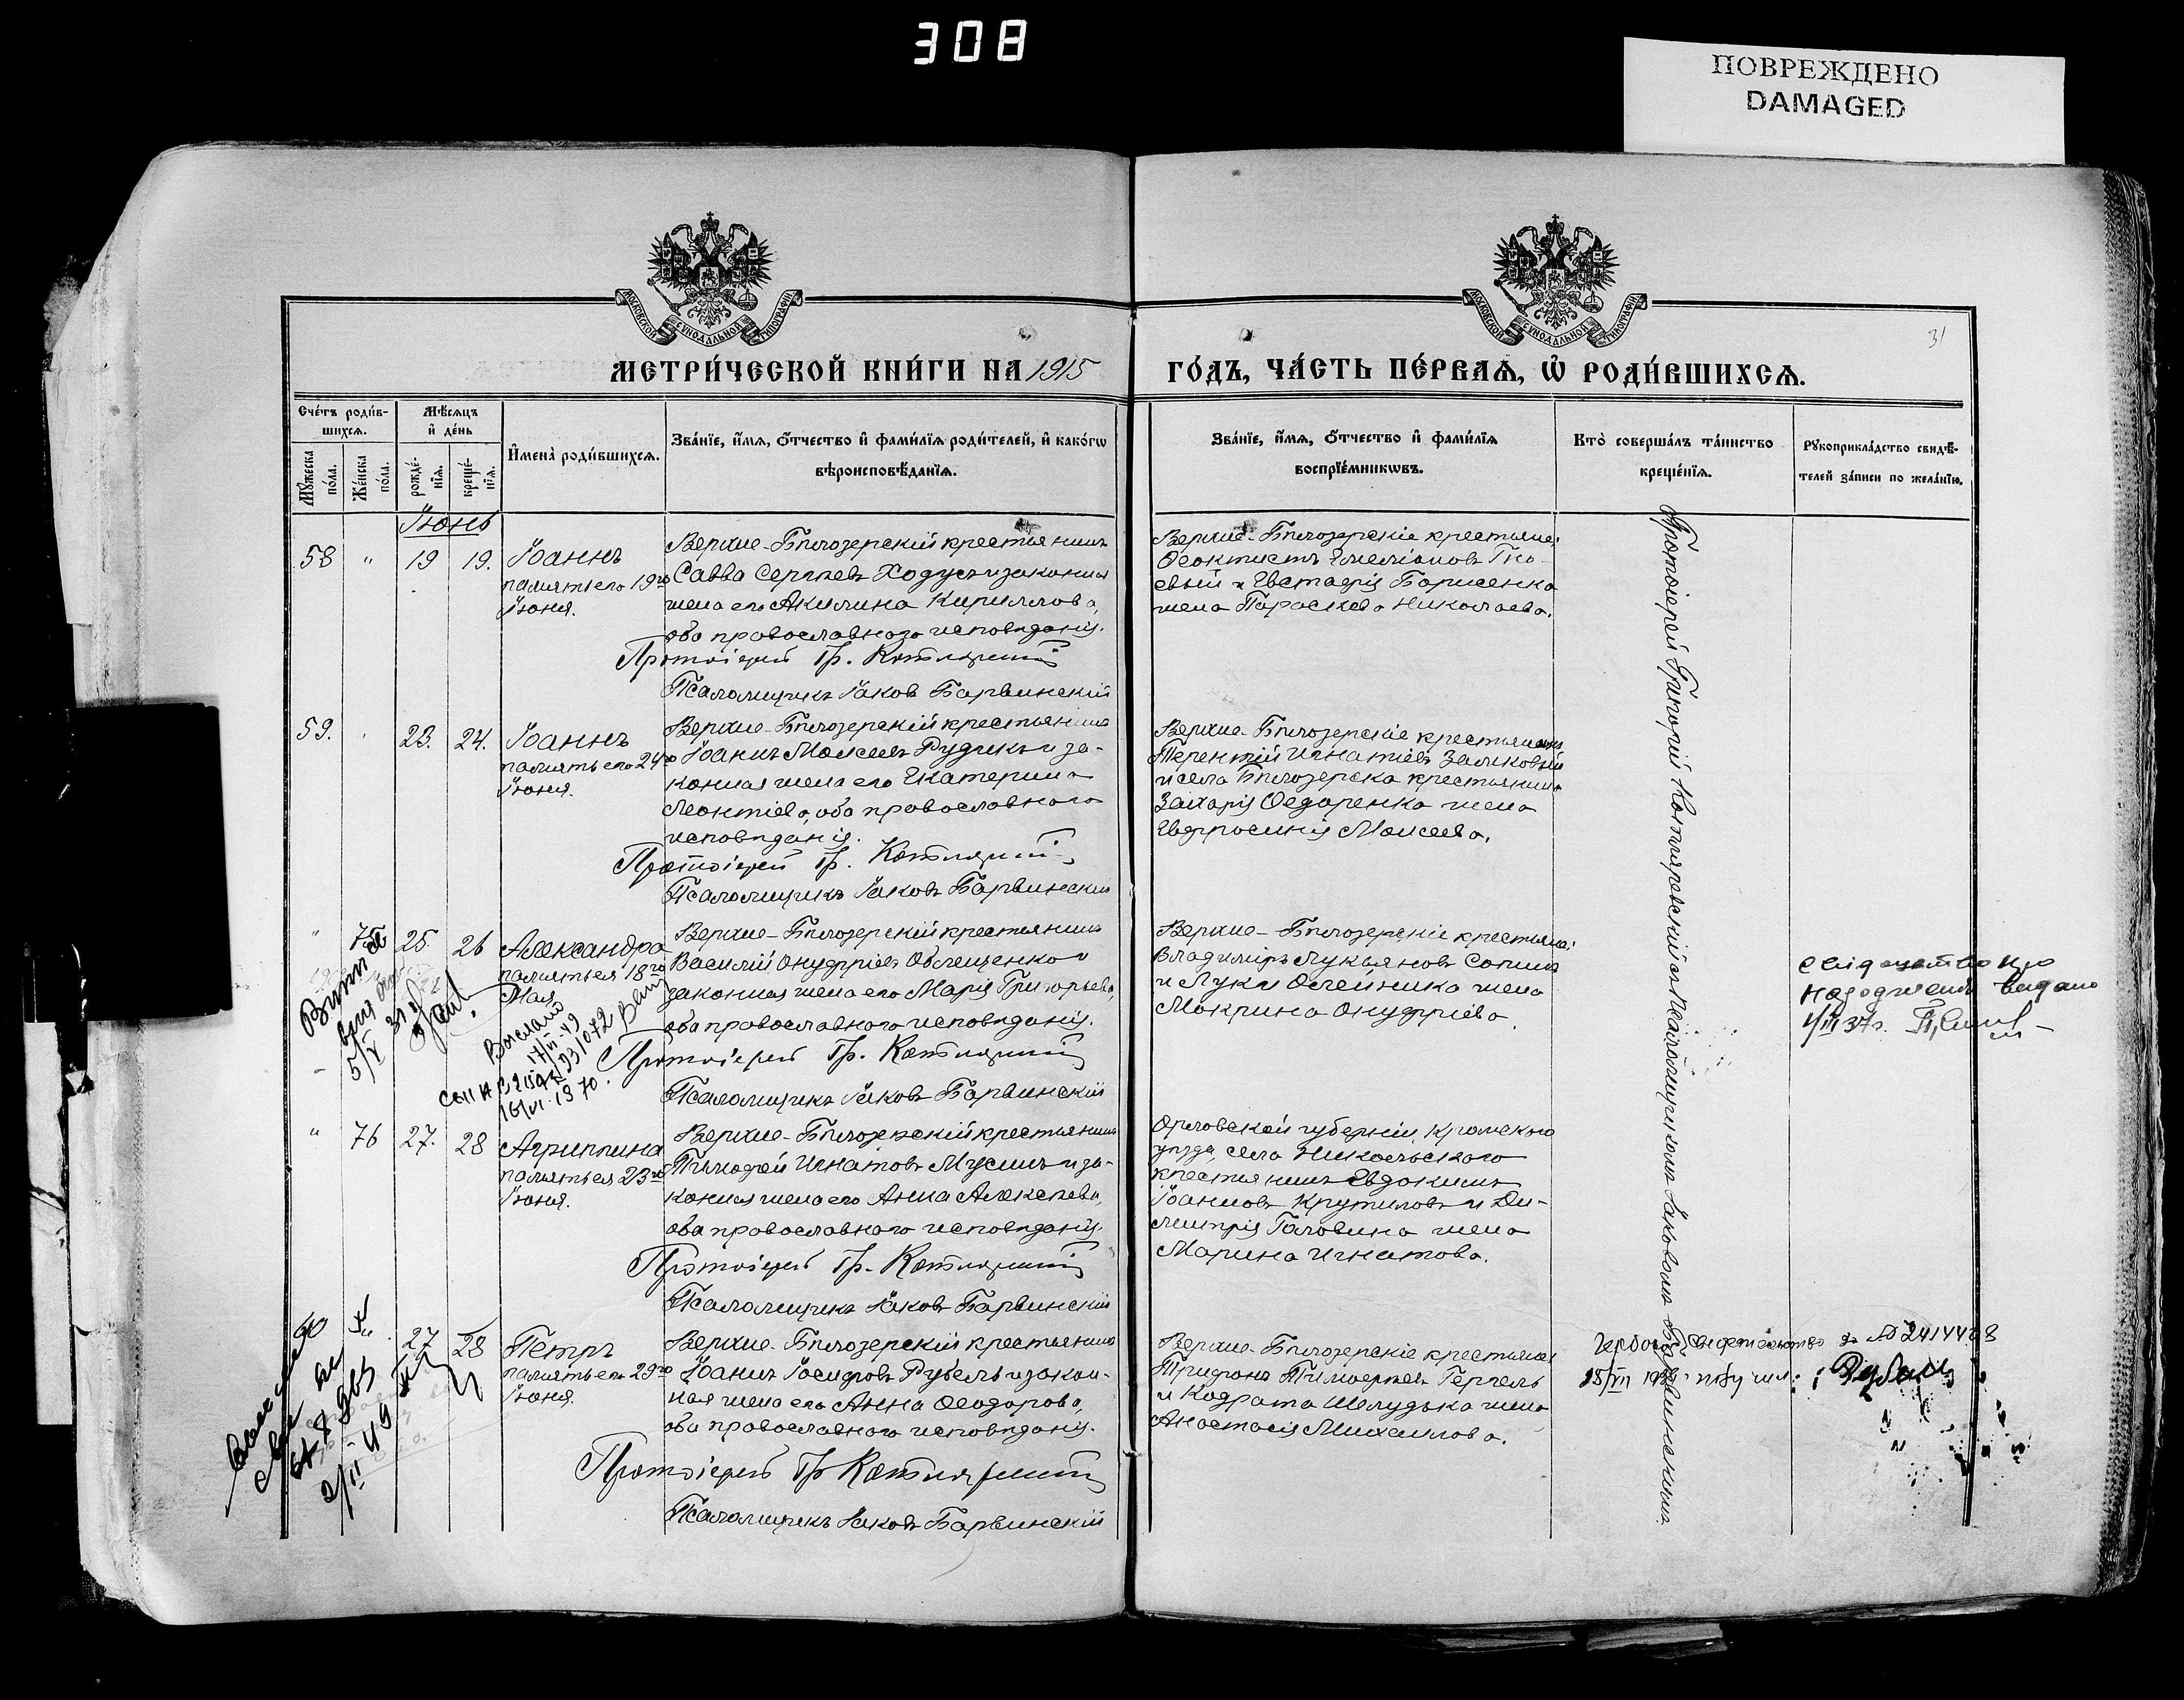 308
ПОВРЕЖДЕНО
DAMAGED
МОСКОВСКОЙ СУНОДАЛЬНОЙ ТИПОГРАФІИ
МОСКОВСКОЙ СУНОДАЛЬНОЙ ТИПОГРАФІИ
31
МЕТРИ́ЧЕСКОЙ КНИ́ГИ НА 1915
ГО́ДЪ, ЧА́СТЬ ПЕ́РВАѦ, Ѡ҆ РОДИ́ВШИХСѦ.
Сче́тъ роди́в-
шихсѧ.
Мꙋ́жеска по́ла.
Же́нска по́ла.
Мѣ́сѧцъ
и҆ де́нь
рожде́-
нїѧ.
креще́-
нїѧ.
И҆мена̀ роди́вшихсѧ.
Зва́нїе, и҆́мѧ, ѻ҆́тчество и҆ фами́лїѧ роди́телей, и҆ како́гѡ
вѣроисповѣ́данїѧ.
Зва́нїе, и҆́мѧ, ѻ҆́тчество и҆ фами́лїѧ
воспрїе́мникѡвъ.
Кто̀ соверша́лъ та́инство
креще́нїѧ.
Рꙋкоприкла́дство свидѣ́-
телей за́писи по жела́нїю.
Іюнь
58 " 19 19.
Іоаннъ
память его 19го
Іюня.
Верхне-Бѣлозерскій крестьянинъ
Савва Сергѣевъ Ходусъ и законная
жена его Акилина Кириллова,
оба православнаго исповѣданія.
Протоіерей Гр. Котляревскій
Псаломщикъ Іаковъ Барвинскій
Верхне-Бѣлозерскіе крестьяне:
Ѳеоктистъ Емеліановъ Гно-
евый и Евстафія Борисенка
жена Параскева Николаева.
Протоіерей Григорій Котляревскій съ Псаломщикомъ Іаковомъ Барвинскимъ
59. 23. 24.
Іоаннъ
память его 24го
Іюня.
Верхне-Бѣлозерскій крестьянинъ
Іоаннъ Моисеевъ Рудикъ и за-
конная жена его Екатерина
Леонтіева, оба православнаго
исповѣданія.
Протоіерей Гр. Котляревскій
Псаломщикъ Іаковъ Барвинскій
Верхне-Бѣлозерскіе крестьянинъ
Терентій Игнатіевъ Заликовый
и села Бѣлозерска крестьянина
Захарія Ѳедоренка жена
Евфросинія Моисеева.
" 75 25 26
Александра
память ея 18го
Мая
Верхне-Бѣлозерскій крестьянинъ
Василій Онуфріевъ Облещенко и
законная жена его Марія Григорьева,
оба православнаго исповѣданія.
Протоіерей Гр. Котляревскій
Псаломщикъ Іаковъ Барвинскій
Выслано
17/VI-49
16/VI-1970.
Верхне-Бѣлозерскіе крестьяне:
Владиміръ Лукьяновъ Сопинъ
и Луки Олейника жена
Макрина Онуфріева.
видано
1/III 37г.
" 76 27. 28
Агриппина
память ея 23го
Іюня.
Верхне-Бѣлозерскій крестьянинъ
Тимофей Игнатовъ Мусинъ и за-
конная жена его Анна Алексѣева,
оба православнаго исповѣданія.
Протоіерей Гр. Котляревскій
Псаломщикъ Іаковъ Барвинскій
Орловской губерніи, Кромскаго
уѣзда, села Никольскаго
крестьянинъ Евдокимъ
Іоанновъ Крутиловъ и Ди-
митрія Головина жена
Марина Игнатова.
60 27 28
Петръ
память его 29го
Іюня.
Верхне-Бѣлозерскій крестьянинъ
Іоаннъ Іосифовъ Рубель и закон-
ная жена его Анна Ѳеодорова,
оба православнаго исповѣданія.
Протоіерей Гр Котляревскій
Псаломщикъ Іаковъ Барвинскій
Верхне-Бѣлозерскіе крестьяне:
Трифонъ Тимофеевъ Гергель
и Кодрата Шелудька жена
Анастасія Михаилова.